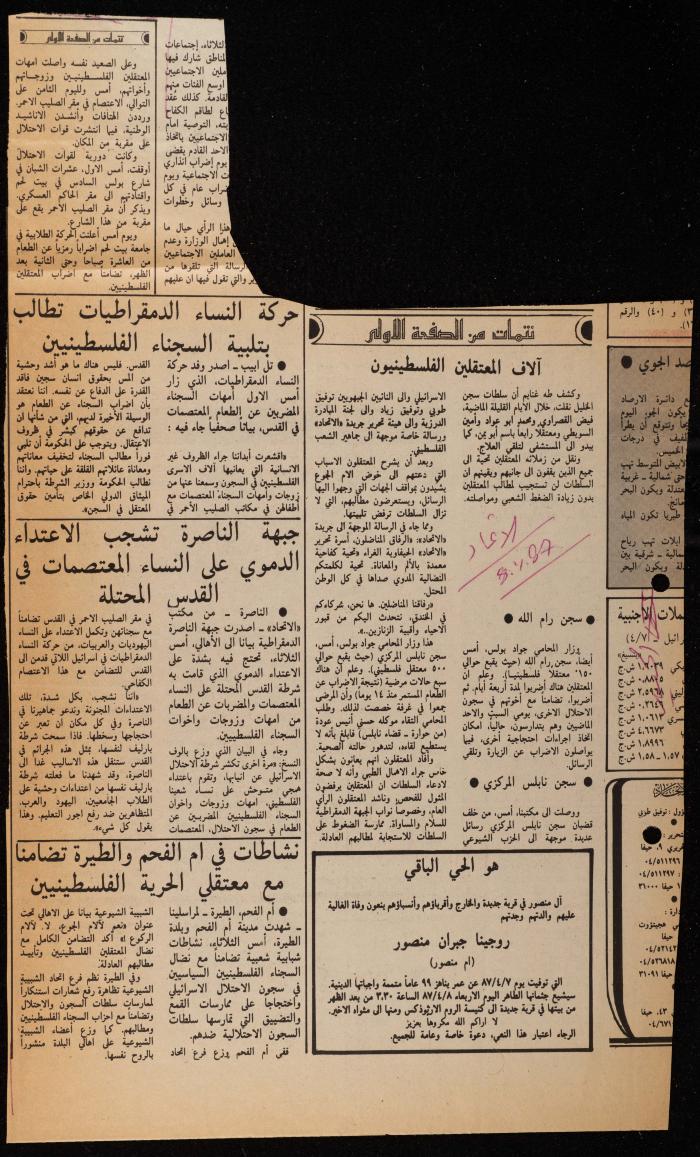 تتمات من الصفحة الأولى
وعلى الصعيد نفسه واصلت امهات
المعتقلين الفلسطينيين وزوجاتهم
وأخواتهم، أمس ولليوم الثامن على
التوالي، الاعتصام في مقر الصليب الاحمر.
ورددن الهتافات وأنشدن الاناشيد
الوطنية، فيما انتشرت قوات الاحتلال
على مقربة من المكان.
وكانت دورية لقوات الاحتلال
أوقفت، أمس الاول، عشرات الشبان في
شارع بولس السادس في بيت لحم
واقتادتهم الى مقر الحاكم العسكري.
ويذكر أن مقر الصليب الاحمر يقع على
مقربة من هذا الشارع.
ويوم أمس أعلنت الحركة الطلابية في
جامعة بيت لحم اضراباً رمزياً عن الطعام
من العاشرة صباحاً وحتى الثانية بعد
الظهر، تضامناً مع اضراب المعتقلين
الفلسطينيين.
الثلاثاء، إجتماعات
لمناطق شارك فيها
املين الاجتماعيين
اوسع الفئات منهم
القادمة. كذلك عُقد
اع لطاقم الكفاح
يته، التوصية امام
الاجتماعيين باتخاذ
الاحد القادم يقضي
يوم إضراب انذاري
ت الاجتماعية ويوم
ضراب عام في كل
وسائل وخطوات
هذا الرأي حيال ما
إهمال الوزارة وعدم
العاملين الاجتماعيين
الرسالة التي تلقوها من
ير والتي تقول فيها ان عليهم
حركة النساء الدمقراطيات تطالب
بتلبية السجناء الفلسطينيين
● تل ابيب ـ اصدر وفد حركة
النساء الدمقراطيات، الذي زار
أمس الاول أمهات السجناء
المضربين عن الطعام المعتصمات
في القدس، بيانا صحفيا جاء فيه :
«اقشعرت أبداننا جراء الظروف غير
الانسانية التي يعانيها آلاف الاسرى
الفلسطينيين في السجون وسمعنا عنها من
زوجات وأمهات السجناء المعتصمات مع
أطفالهن في مكاتب الصليب الأحمر في
القدس. فليس هناك ما هو أشد وحشية
من المس بحقوق انسان سجين فاقد
القدرة على الدفاع عن نفسه. اننا نعتقد
بأن اضراب السجناء عن الطعام هو
الوسيلة الأخيرة لديهم، التي من شأنها ان
تدافع عن حقوقهم كبشر في ظروف
الاعتقال. ويتوجب على الحكومة أن تلبي
فوراً مطالب السجناء لتخفيف معاناتهم
ومعاناة عائلاتهم القلقة على حياتهم. واننا
نطالب الحكومة ووزير الشرطة باحترام
الميثاق الدولي الخاص بتأمين حقوق
المعتقل في السجن».
جبهة الناصرة تشجب الاعتداء
الدموي على النساء المعتصمات في
القدس المحتلة
● الناصرة ـ من مكتب
«الاتحاد» ـ اصدرت جبهة الناصرة
الدمقراطية بيانا الى الأهالي، أمس
الثلاثاء، تحتج فيه بشدة على
الاعتداء الدموي الذي قامت به
شرطة القدس المحتلة على النساء
المعتصمات والمضربات عن الطعام
من امهات وزوجات واخوات
السجناء الفلسطينيين.
وجاء في البيان الذي وزع بالوف
النسخ: «مرة اخرى تكشر شرطة الاحتلال
الاسرائيلي عن أنيابها، وتقوم باعتداء
همجي متوحش على نساء شعبنا
الفلسطيني، امهات وزوجات واخوان
السجناء الفلسطينيين المضربين عن
الطعام في سجون الاحتلال، المعتصمات
في مقر الصليب الاحمر في القدس تضامناً
مع سجنائهن وتكمل الاعتداء على النساء
اليهوديات والعربيات، من حركة النساء
الدمقراطيات في اسرائيل اللاتي قدمن الى
القدس للتضامن مع هذا الاعتصام
الكفاحي.
«اننا نشجب، بكل شدة، تلك
الاعتداءات المجنونة وندعو جماهيرنا في
الناصرة وفي كل مكان أن تعبر عن
احتجاجها وسخطها. فاذا سمحت شرطة
بارليف لنفسها، بمثل هذه الجرائم في
القدس ستنقل هذه الأساليب غدا الى
الناصرة، وقد شهدنا ما فعلته شرطة
بارليف نفسها من اعتداءات وحشية على
الطلاب الجامعيين، اليهود والعرب،
المتظاهرين ضد رفع اجور التعليم. وهذا
يقول كل شيء».
نشاطات في ام الفحم والطيرة تضامنا
مع معتقلي الحرية الفلسطينيين
● أم الفحم، الطيرة ـ لمراسلينا
ـ شهدت مدينة أم الفحم وبلدة
الطيرة، أمس الثلاثاء، نشاطات
شبابية شعبية تضامناً مع نضال
السجناء الفلسطينيين السياسيين
في سجون الاحتلال الاسرائيلي
واحتجاجا على ممارسات القمع
والتضييق التي تمارسها سلطات
السجون الاحتلالية ضدهم.
ففي أم الفحم وزع فرع اتحاد
الشبيبة الشيوعية بيانا على الاهالي تحت
عنوان «نعم لآلام الجوع، لا لآلام
الركوع !» أكد التضامن الكامل مع
نضال المعتقلين الفلسطينيين وتأييد
مطالبهم العادلة.
وفي الطيرة نظم فرع اتحاد الشبيبة
الشيوعية تظاهرة رفع شعارات استنكاراً
لممارسات سلطات السجون والاحتلال
وتضامنا مع احزاب السجناء الفلسطينيين
ومطالبهم. كما وزع أعضاء الشبيبة
الشيوعية على أهالي البلدة منشوراً
بالروح نفسها.
تتمات من الصفحة الأولى
آلاف المعتقلين الفلسطينيون
وكشف طه غنايم أن سلطات سجن
الخليل نقلت، خلال الايام القليلة الماضية،
فيض القصراوي ومحمد ابو عواد وأمين
السويطي ومعتقلاً رابعاً باسم أبو يمن، كما
يبدو الى المستشفى لتلقي العلاج.
ونقل من زملائه المعتقلين تحية الى
جميع الذين يقفون الى جانبهم ويقينهم ان
السلطات لن تستجيب لمطالب المعتقلين
بدون زيادة الضغط الشعبي ومواصلته.
الاتحاد
8.4.87
● سجن رام الله
وزار المحامي جواد بولس، أمس
أيضا، سجن رام الله (حيث يقبع حوالي
١٥٠ معتقلاً فلسطينياً). وعلم ان
المعتقلين هناك أضربوا لمدة أربعة أيام. ثم
أضربوا، تضامناً مع أخوتهم في سجون
الاحتلال الاخرى، يومي السبت والاحد
الماضيين وهم يتدارسون، حالياً، امكان
اتخاذ اجراءات احتجاجية اخرى، فيما
يواصلون الاضراب عن الزيارة وتلقي
الرسائل.
● سجن نابلس المركزي ●
ووصلت الى مكتبنا، أمس، من خلف
قضبان سجن نابلس المركزي رسائل
عديدة موجهة الى الحزب الشيوعي
الاسرائيلي والى النائبين الجبهويين توفيق
طوبي وتوفيق زياد والى لجنة المبادرة
الدرزية والى هيئة تحرير جريدة «الاتحاد»
ورسالة خاصة موجهة الى جماهير الشعب
الفلسطيني.
وبعد أن يشرح المعتقلون الاسباب
التي دعتهم الى خوض آلام الجوع
يشيدون بمواقف الجهات التي وجهوا اليها
الرسائل، ويستعرضون مطالبهم، التي لا
تزال السلطات ترفض تلبيتها.
ومما جاء في الرسالة الموجهة الى جريدة
«الاتحاد»: «الرفاق المناضلون، أسرة تحرير
«الاتحاد» الحيفاوية الغراء «تحية كفاحية
معمدة بالألم والمعاناة. تحية لكلمتكم
النضالية المدوي صداها في كل الوطن
المحتل.
«رفاقنا المناضلين. ها نحن، شركاءكم
في الخندق، نتحدث اليكم من قبور
الاحياء وأقبية الزنازين..».
هذا وزار المحامي جواد بولس، أمس،
سجن نابلس المركزي (حيث يقبع حوالي
٥٠٠ معتقل فلسطيني). وعلم أن هناك
سبع حالات مرضية (نتيجة الاضراب عن
الطعام المستمر منذ ١٤ يوماً) وأن المرضى
جمعوا في غرفة خصصت لذلك. وطلب
المحامي التقاء موكله حسني أنيس عودة
(من حوارة ـ قضاء نابلس) فأبلغ بأنه لا
يستطيع لقاءه، لتدهور حالته الصحية.
وأفاد المعتقلون انهم يعانون بشكل
خاص جراء الاهمال الطبي وأنه لا صحة
لادعاء السلطات ان المعتقلين يرفضون
المثول للفحص. وناشد المعتقلون الرأي
العام، وخصوصا نواب الجبهة الدمقراطية
للسلام والمساواة، ممارسة الضغوط على
السلطات للاستجابة لمطالبهم العادلة.
هو الحي الباقي
آل منصور في قرية جديدة والخارج وأقرباؤهم وأنسباؤهم ينعون وفاة الغالية
عليهم والدتهم وجدتهم
روجينا جبران منصور
(ام منصور)
التي توفيت يوم ٨٧/٤/٧ عن عمر يناهز ٩٩ عاماً متممة واجباتها الدينية.
سيشيع جثمانها الطاهر اليوم الاربعاء ٨٧/٤/٨ الساعة ٣،٣٠ من بعد الظهر
من بيتها في قرية جديدة الى كنيسة الروم الارثوذكس ومنها الى مثواه الاخير.
لا اراكم الله مكروها بعزيز
الرجاء اعتبار هذا النعي، دعوة خاصة وعامة للجميع.
و (٤٠) والرقم
صد الجوي ●
دائرة الارصاد
يكون الجو، اليوم
وتتوقع أن يطرأ
في درجات
الخميس.
لابيض المتوسط تهب
حتى شمالية ـ غربية
معتدلة ويكون البحر
طبريا تكون المياه
ايلات تهب رياح
شمالية ـ شرقية بين
ويكون البحر
ملات الأجنبية
(٤/٧)
توفيق طوبي
حيفا
٠٤/٥١١٢٩٦
٠٤/٥١١٢٩٧
٣١٠٠٠ حيفا
٣١٠٩١ حيفا